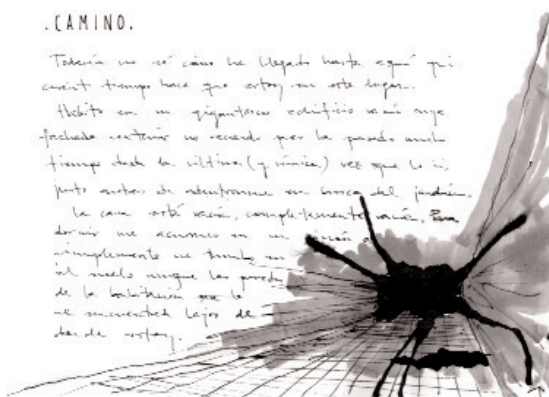 .CAMINO.
Todavía no sé cómo he llegado hasta aquí ni
cuánto tiempo hace que estoy en este lugar.
Habito en un gigantesco edificio vacío cuya
fachada exterior no recuerdo pues ha pasado mucho
tiempo desde la última (y única) vez que la vi,
justo antes de adentrarme en busca del jardín.
La casa está vacía, completamente vacía. Para
dormir me acurruco en un rincón o
simplemente me tumbo en
el suelo aunque las
de la habitación
se encuentren lejos de
donde estoy.